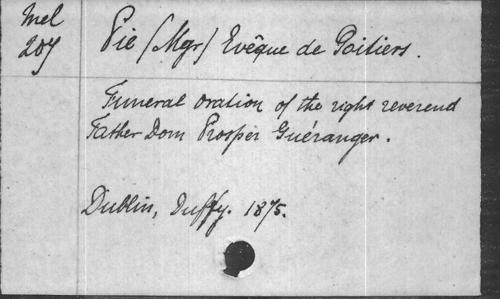 Mel
207
Pie (Mgr) Evêque de Poitiers.
Funeral oration of the right reverend
Father Dom Prosper Guéranger.
Dublin, Duffy. 1875.